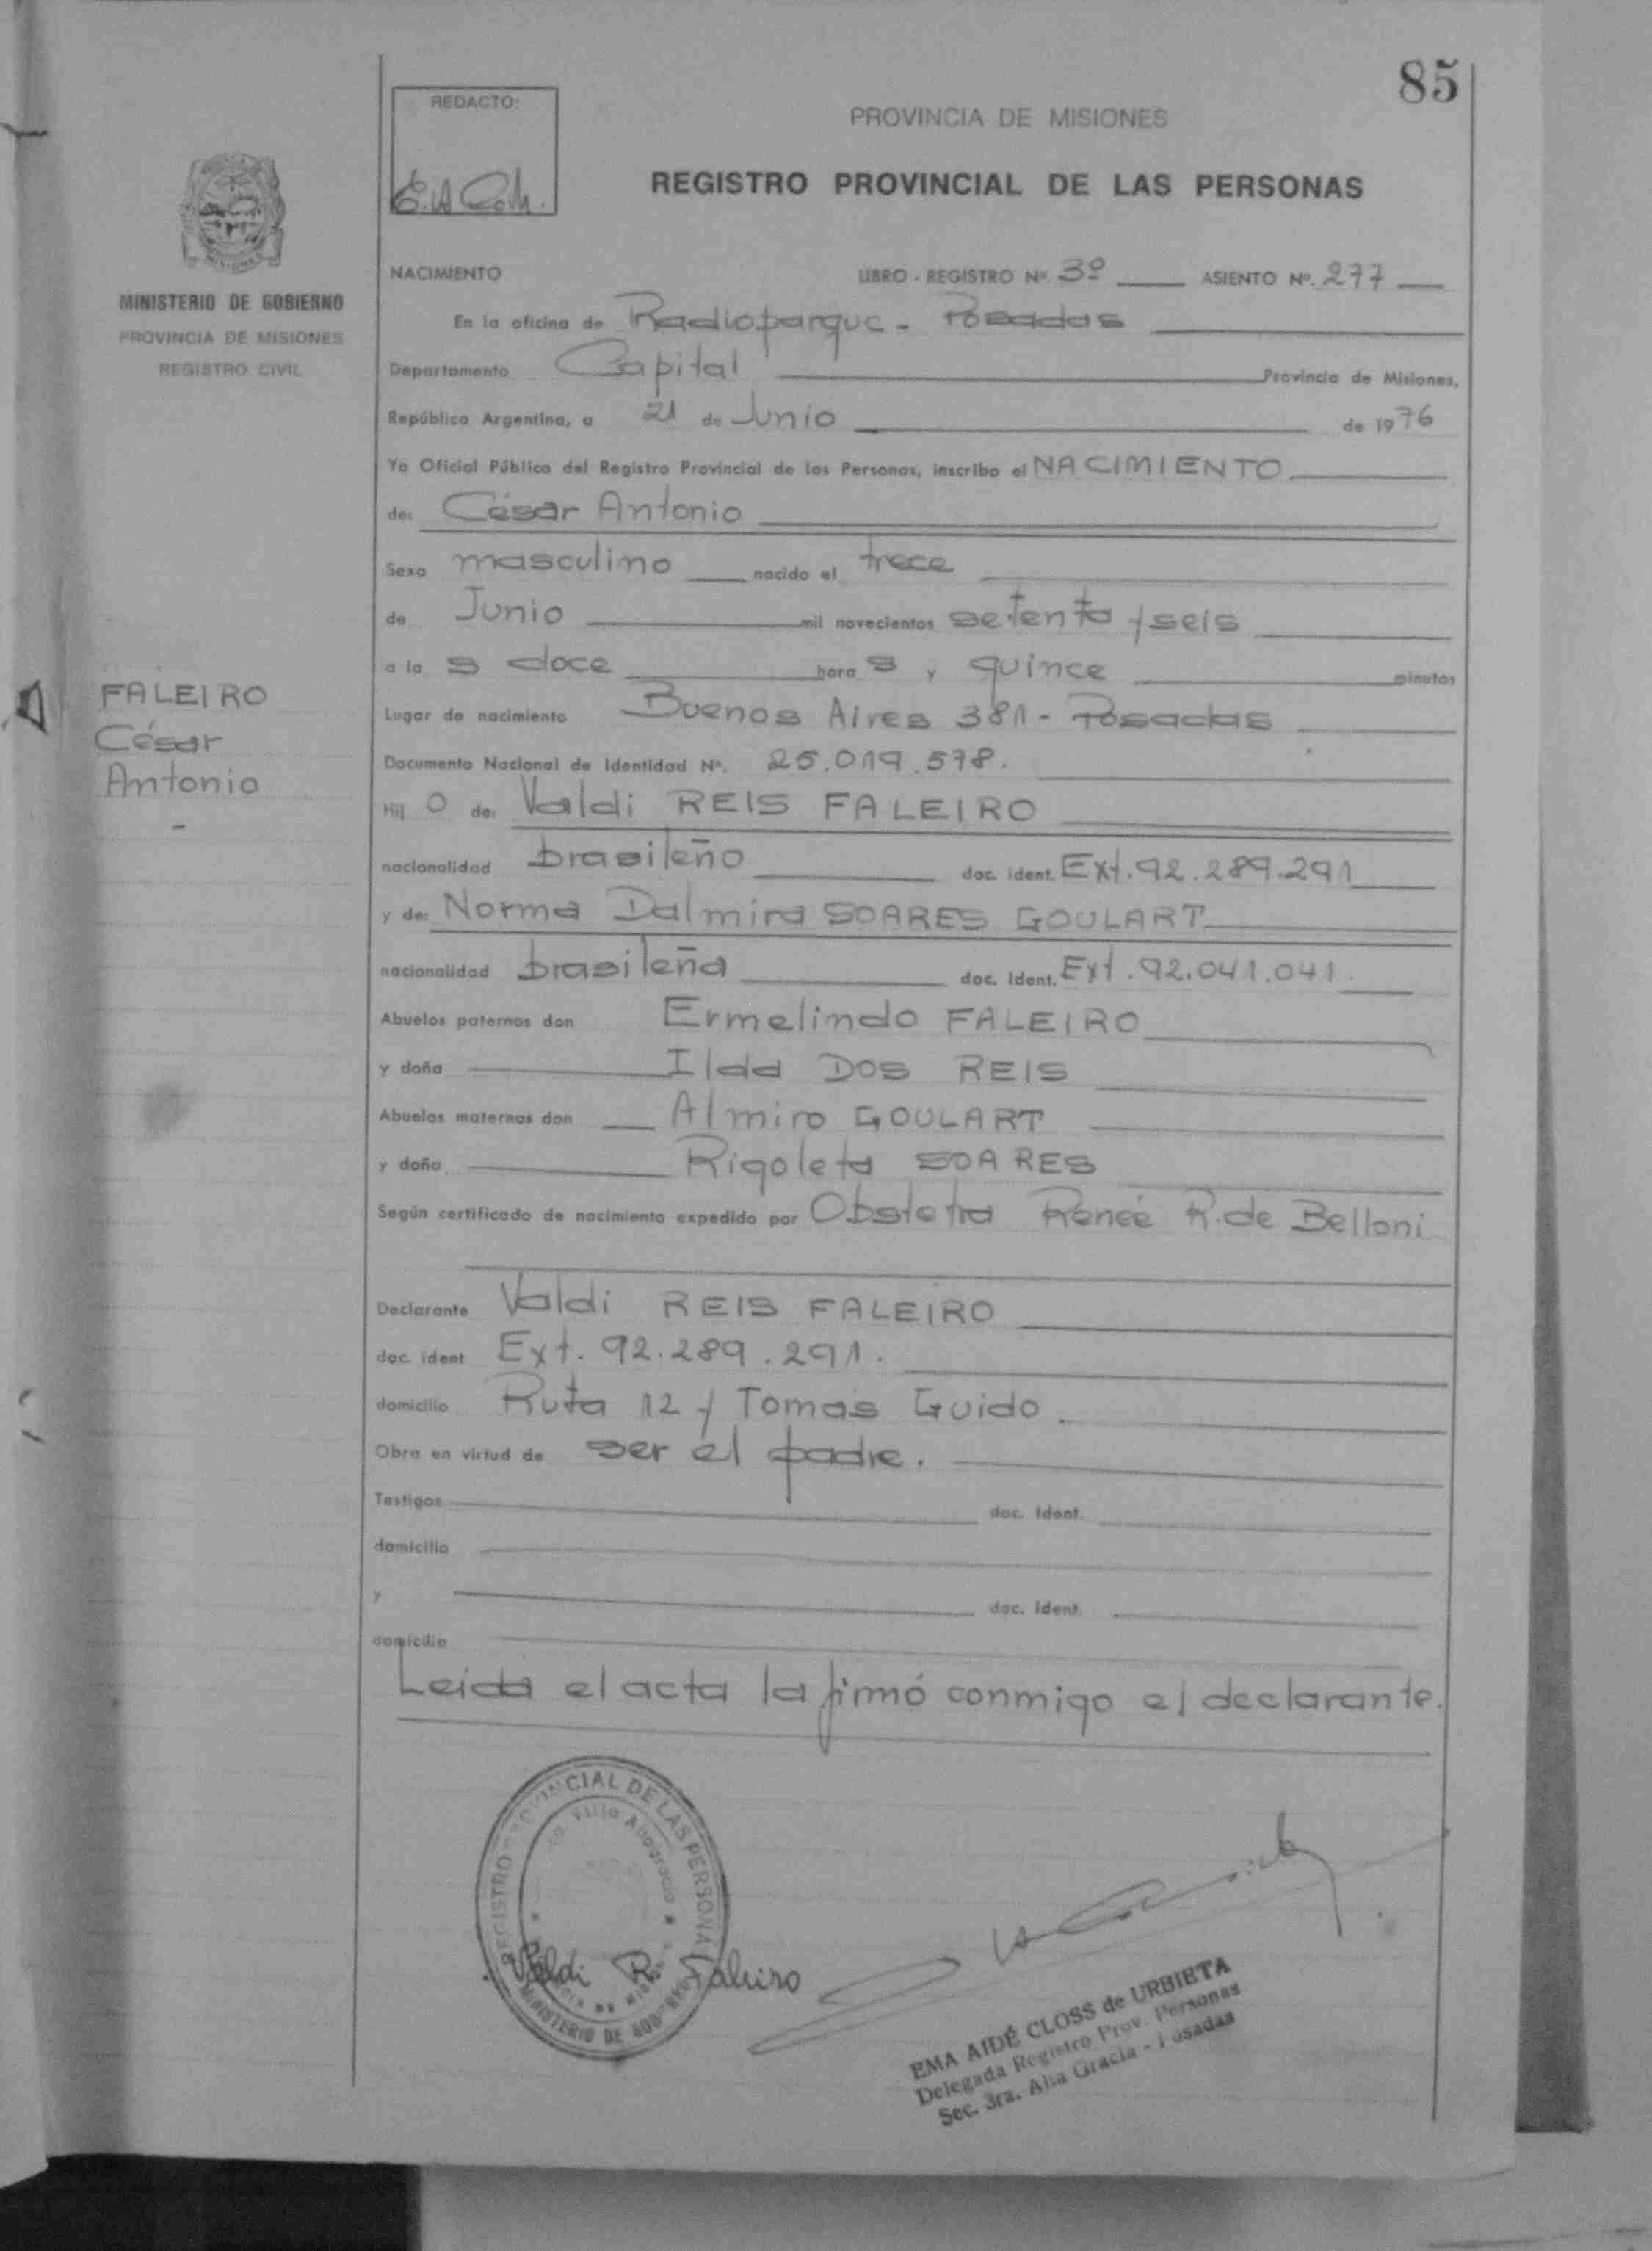 85
REDACTO:
PROVINCIA DE MISIONES
REGISTRO PROVINCIAL DE LAS PERSONAS
MINISTERIO DE GOBIERNO
PROVINCIA DE MISIONES
REGISTRO CIVIL
NACIMIENTO LIBRO - REGISTRO Nº. 3º ASIENTO Nº. 277
En la oficina de Radioparque - Posadas
Departamento Capital Provincia de Misiones,
República Argentina, a 21 de Junio de 1976
Yo Oficial Público del Registro Provincial de las Personas, inscribo el NACIMIENTO
de: César Antonio
Sexo masculino nacido el trece
de Junio mil novecientos setenta y seis
a la s doce hora s y quince minutos
FALEIRO
César
Antonio
Lugar de nacimiento Buenos Aires 381 - Posadas
Documento Nacional de Identidad Nº. 25.019.578.
Hij o de: Valdi REIS FALEIRO
nacionalidad brasileño doc. ident. Ext. 92.289.291
y de: Norma Dalmira SOARES GOULART
nacionalidad brasileña doc. ident. Ext. 92.041.041.
Abuelos paternos don Ermelindo FALEIRO
y doña Ilda DOS REIS
Abuelos maternos don Almiro GOULART
y doña Rigoleta SOARES
Según certificado de nacimiento expedido por Obstetra Reneé R. de Belloni
Declarante Valdi REIS FALEIRO
doc. ident Ext. 92.289.291.
domicilio Ruta 12 y Tomás Guido.
Obra en virtud de ser el padre.
Testigos doc. ident.
domicilio
y doc. ident
domicilio
Leída el acta la firmó conmigo el declarante.
REGISTRO PROVINCIAL DE LAS PERSONAS
Villa Altagracia
MINISTERIO DE GOBIERNO
Valdi R. Faleiro
EMA AIDÉ CLOSS de URBIETA
Delegada Registro Prov. Personas
Sec. 3ra. Alta Gracia - Posadas